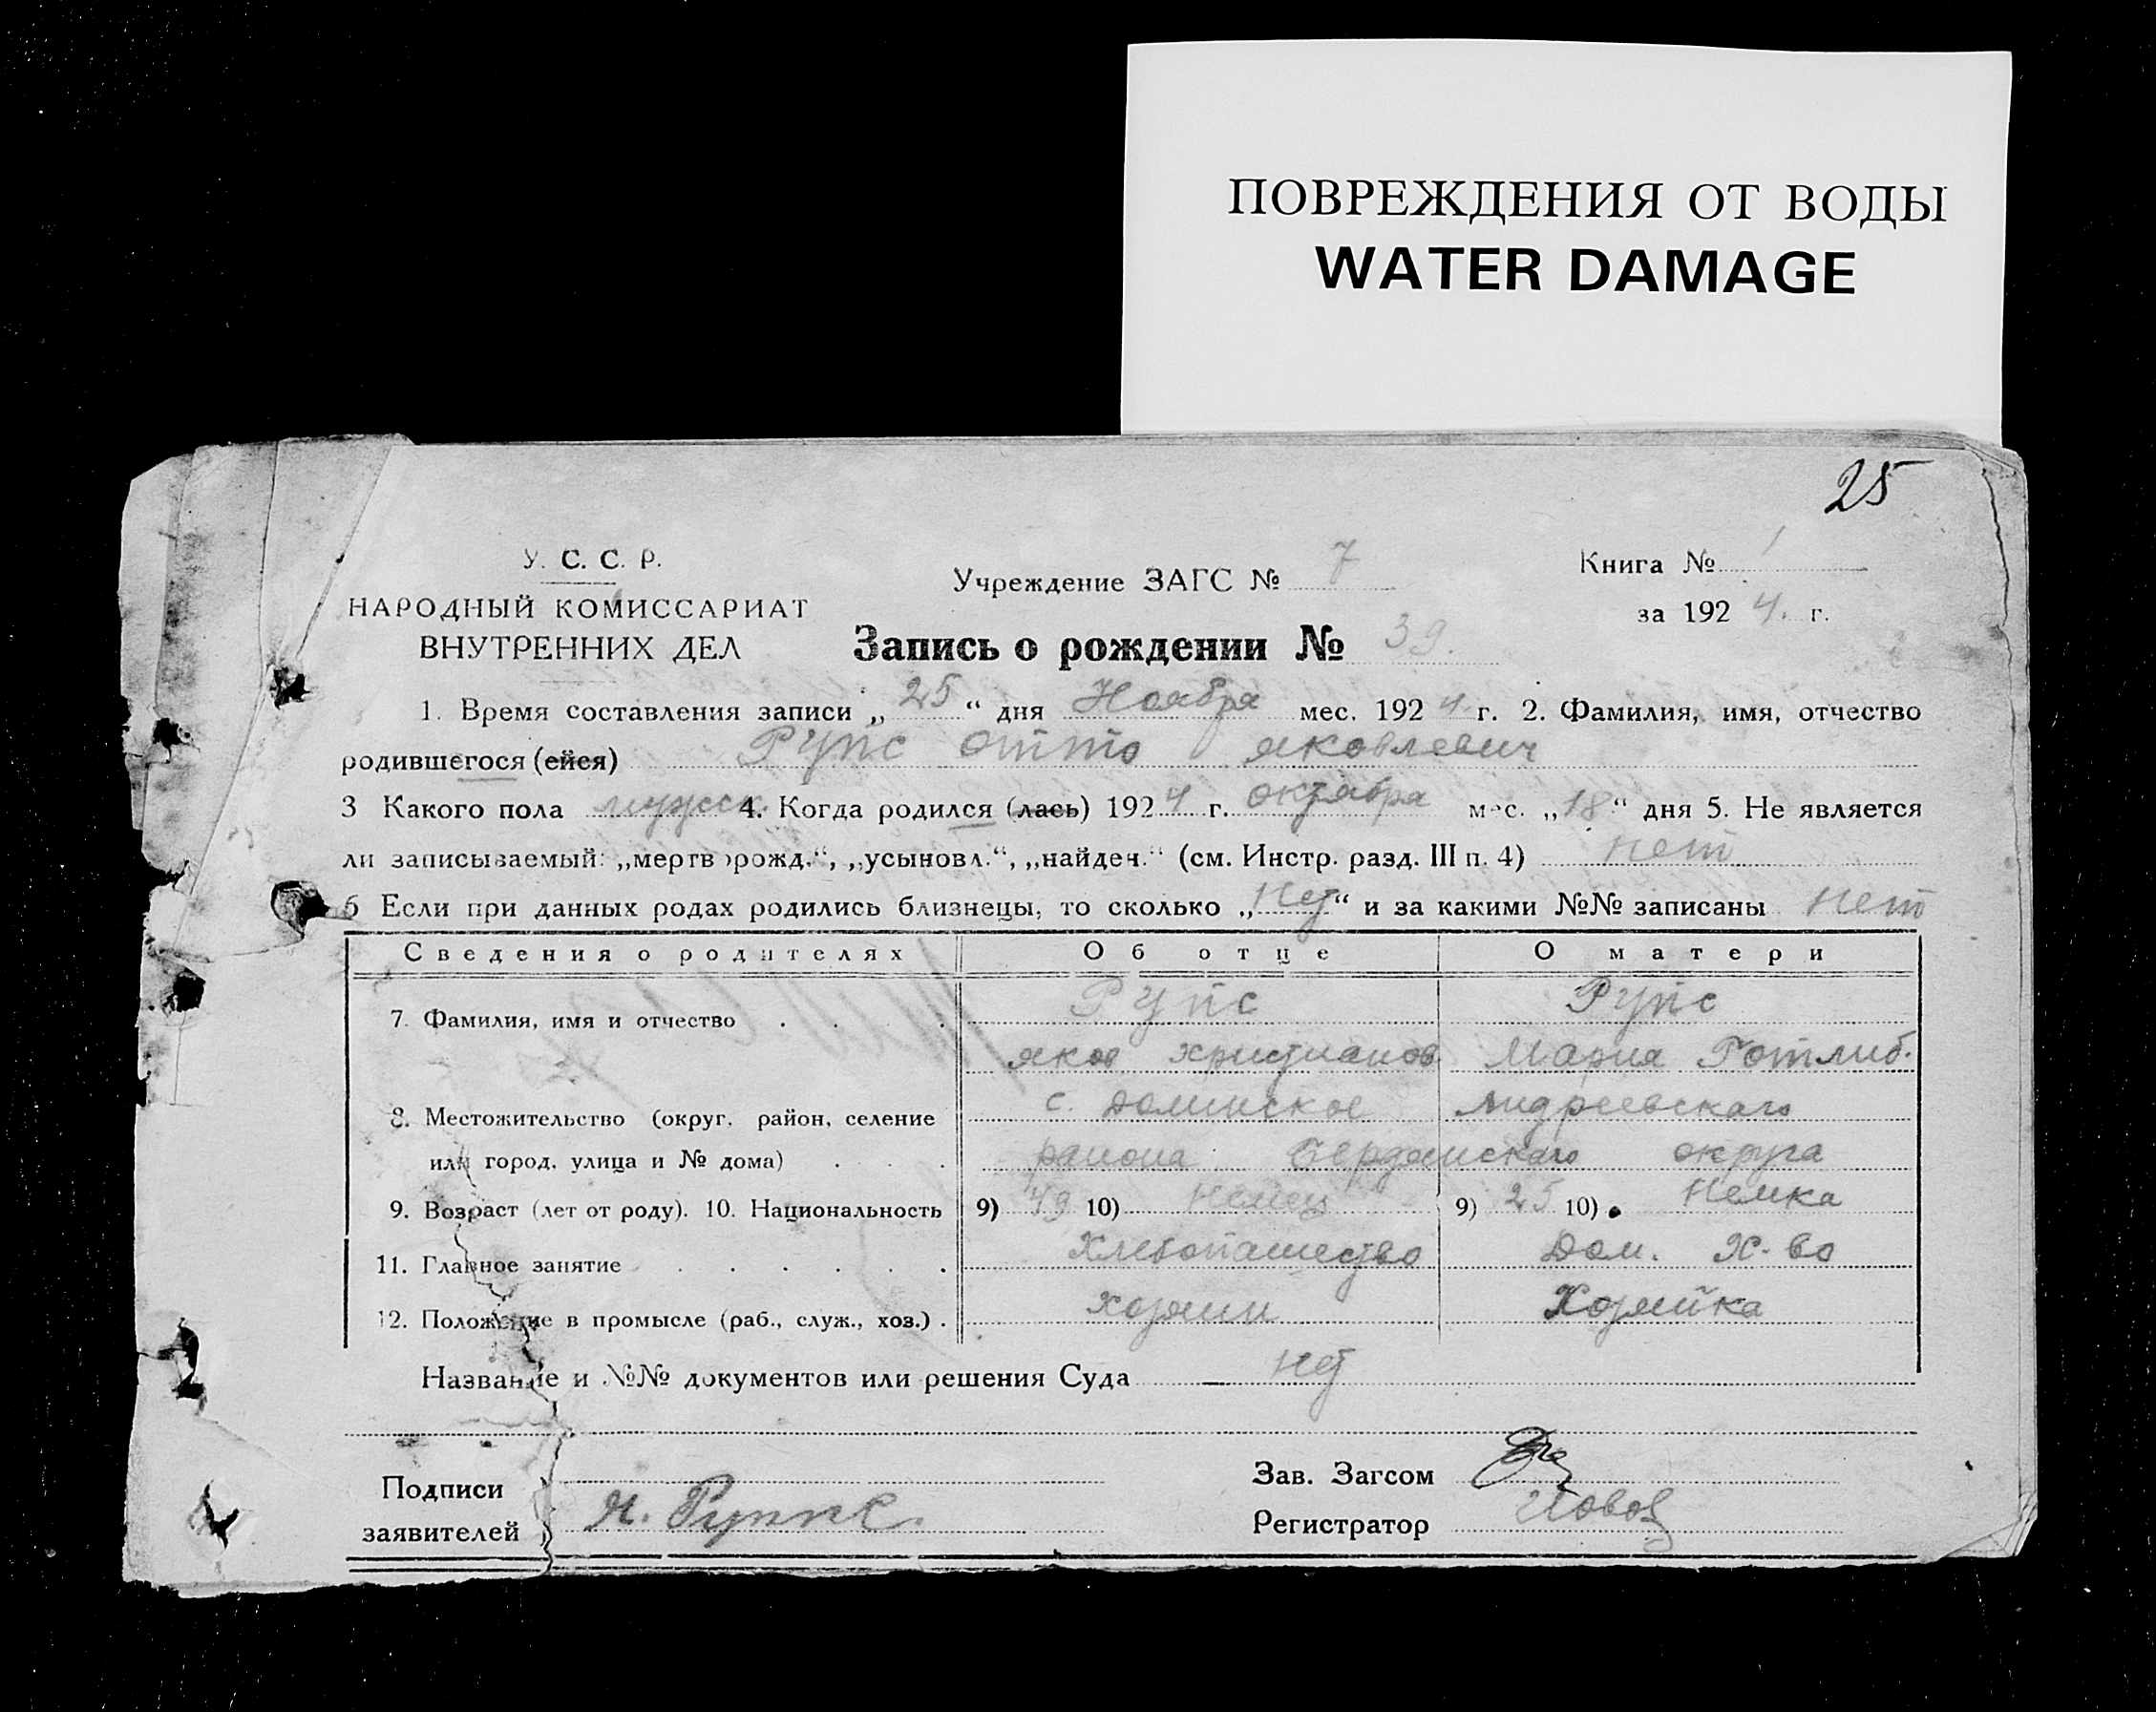 ПОВРЕЖДЕНИЯ ОТ ВОДЫ
WATER DAMAGE
25
У. С. С. Р.
НАРОДНЫЙ КОМИССАРИАТ
ВНУТРЕННИХ ДЕЛ
Учреждение ЗАГС № 7
Книга № 1
за 1924. г.
Запись о рождении № 39.
1. Время составления записи „25“ дня Ноября мес. 1924 г. 2. Фамилия, имя, отчество
родившегося (ейся) Рупс Отто Яковлевич
3 Какого пола мужск. 4. Когда родился (лась) 1924 г. октября мес. „18“ дня 5. Не является
ли записываемый: „мертворожд.“, „усыновл.“, „найден.“ (см. Инстр. разд. III п. 4) нет
6 Если при данных родах родились близнецы, то сколько „нет“ и за какими №№ записаны нет
Сведения о родителях Об отце О матери
7. Фамилия, имя и отчество . . . . Рупс Рупс
Яков Христианов. Мария Готлиб.
8. Местожительство (округ, район, селение с. Долинское Андреевскаго
или город, улица и № дома) . . . района Бердянскаго округа
9. Возраст (лет от роду). 10. Национальность 9) 49 10) Немец 9) 25 10) Немка
11. Главное занятие . . . . . . Хлебопашество Дом. Х-во
12. Положение в промысле (раб., служ., хоз.) . Хозяин Хозяйка
Название и №№ документов или решения Суда — нет
Подписи
заявителей } Я. Руппс.
Зав. Загсом
Регистратор